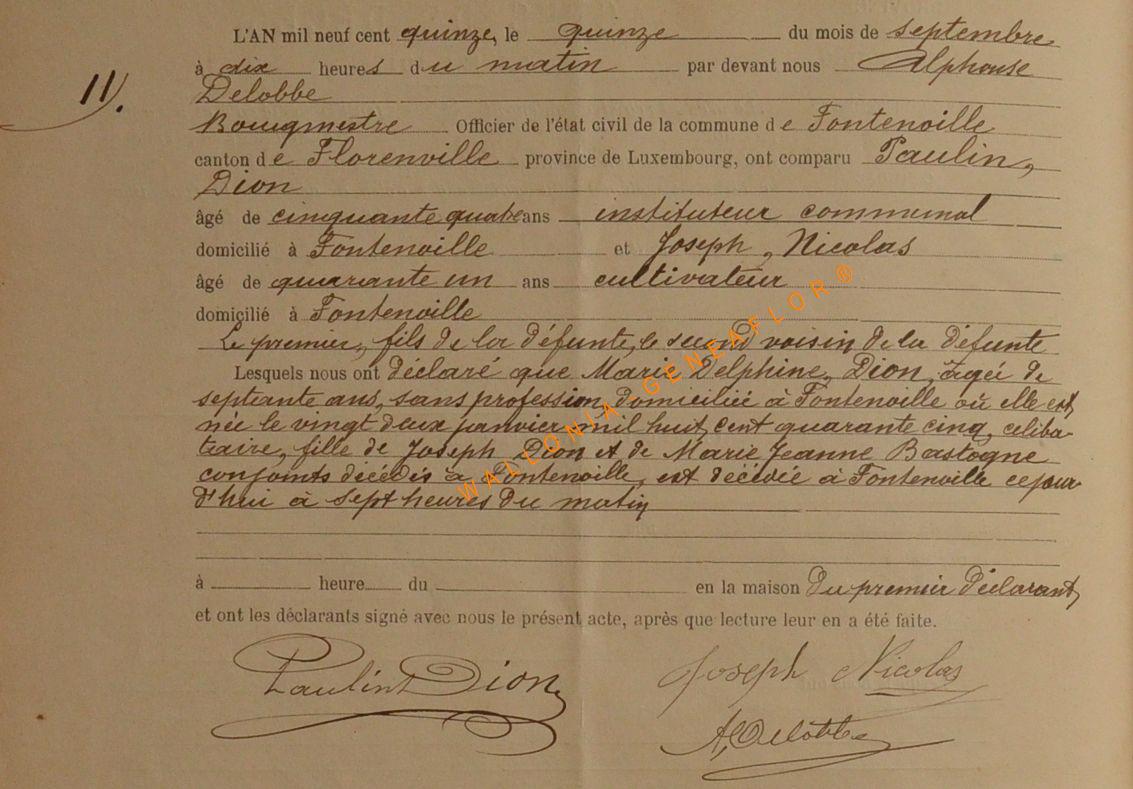 L'AN mil neuf cent quinze, le quinze du mois de septembre
à dix heures du matin par devant nous Alphonse
11.
Delobbe
Bourgmestre Officier de l'état civil de la commune de Fontenoille
canton de Florenville province de Luxembourg, ont comparu Paulin,
Dion
âgé de cinquante quatre ans instituteur communal
domicilié à Fontenoille et Joseph, Nicolas
âgé de quarante un ans cultivateur
domicilié à Fontenoille
Le premier, fils de la défunte, le second voisin de la défunte
Lesquels nous ont déclaré que Marie Delphine, Dion, âgée de
septante ans, sans profession, domiciliée à Fontenoille où elle est
née le vingt deux janvier mil huit cent quarante cinq, céliba-
taire, fille de Joseph Dion et de Marie Jeanne Bastogne
conjoints décédés à Fontenoille, est décédée à Fontenoille ce jour
d'hui à sept heures du matin
à heure du en la maison du premier déclarant,
et ont les déclarants signé avec nous le présent acte, après que lecture leur en a été faite.
Paulin Dion
Joseph Nicolas
A. Delobbe
WALLONIA-GENEAFLOR®